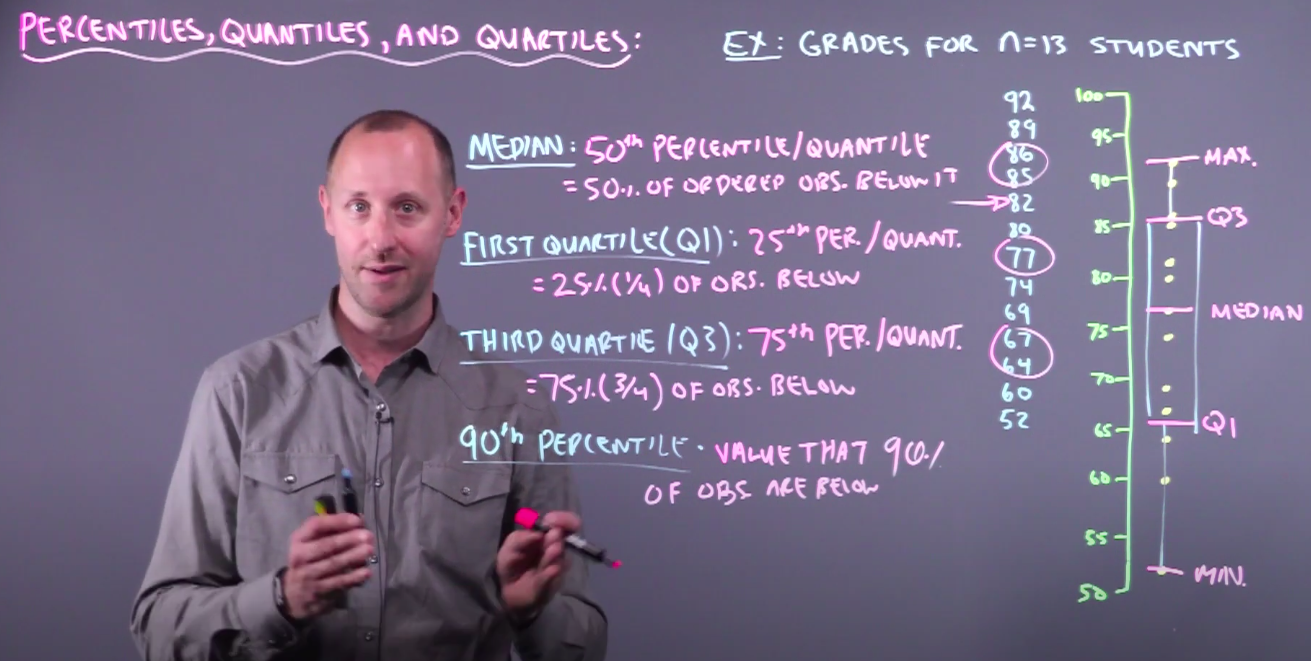 PERCENTILES, QUANTILES, AND QUARTILES:
EX: GRADES FOR n=13 STUDENTS
MEDIAN: 50th PERCENTILE/QUANTILE
= 50% OF ORDERED OBS. BELOW IT
FIRST QUARTILE (Q1): 25th PER./QUANT.
= 25% (1/4) OF OBS. BELOW
THIRD QUARTILE (Q3): 75th PER./QUANT.
= 75% (3/4) OF OBS. BELOW
90th PERCENTILE. VALUE THAT 90%
OF OBS ARE BELOW
92
89
86
85
82
80
77
74
69
67
64
60
52
100
95
90
85
80
75
70
65
60
55
50
MAX.
Q3
MEDIAN
Q1
MIN.